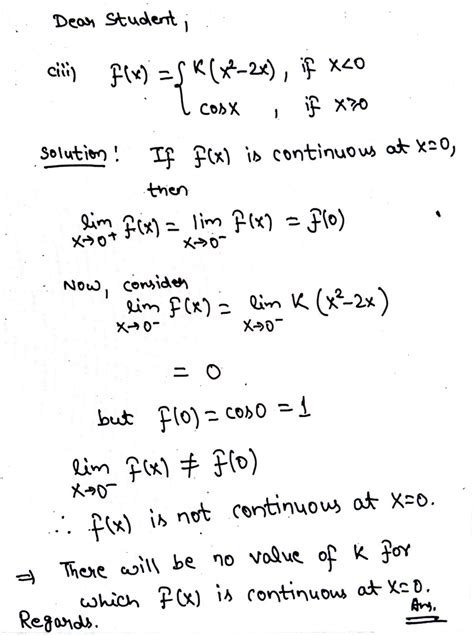 Dear Student,
ciii) f(x) = { K(x²-2x), if x<0
cosx , if x≥0
Solution! If f(x) is continuous at x=0,
then
lim x→0⁺ f(x) = lim x→0⁻ f(x) = f(0)
Now, consider
lim x→0⁻ f(x) = lim x→0⁻ K (x²-2x)
= 0
but f(0) = cos0 = 1
lim x→0⁻ f(x) ≠ f(0)
∴ f(x) is not continuous at x=0.
⇒ There will be no value of K for
which f(x) is continuous at x=0.
Ans.
Regards.